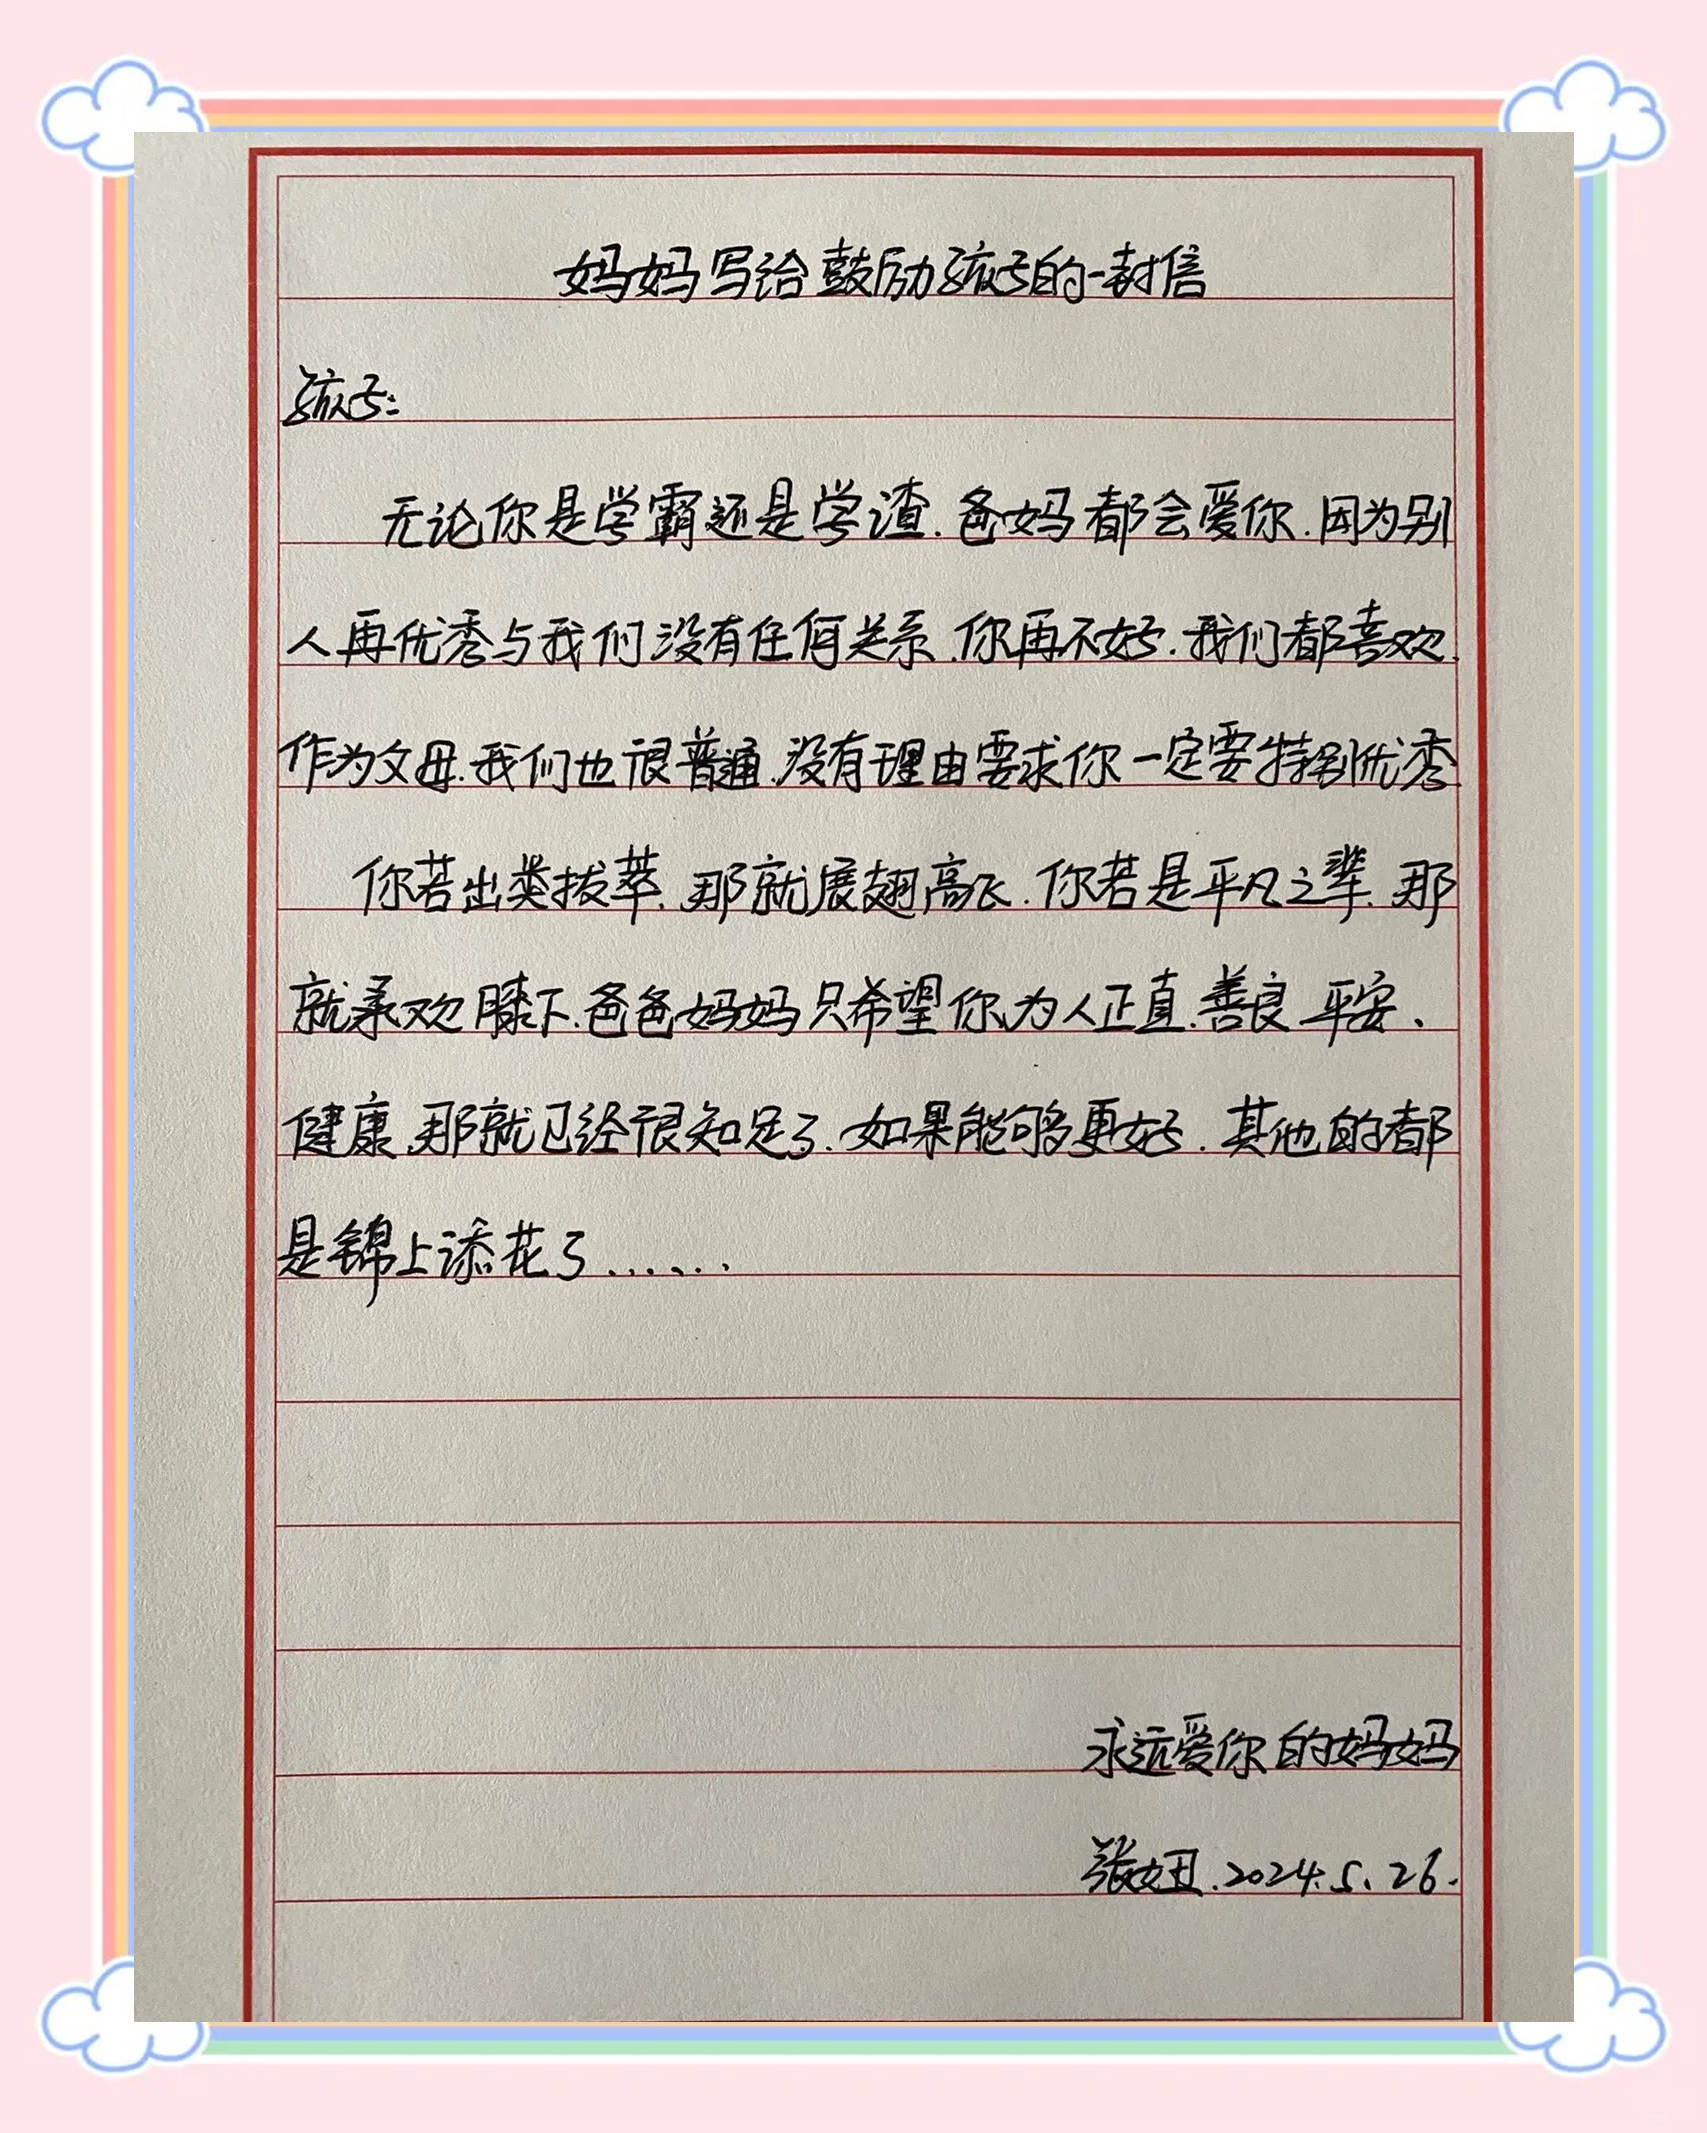 妈妈写给鼓励孩子的一封信
孩子:
无论你是学霸还是学渣.爸妈都会爱你.因为别
人再优秀与我们没有任何关系.你再不好.我们都喜欢.
作为父母.我们也很普通.没有理由要求你一定要特别优秀
你若出类拔萃.那就展翅高飞.你若是平凡之辈.那
就承欢膝下.爸爸妈妈只希望你为人正直.善良 平安、
健康.那就已经很知足了.如果能够更好.其他的都
是锦上添花了......
永远爱你的妈妈
张妞.2024.5.26.